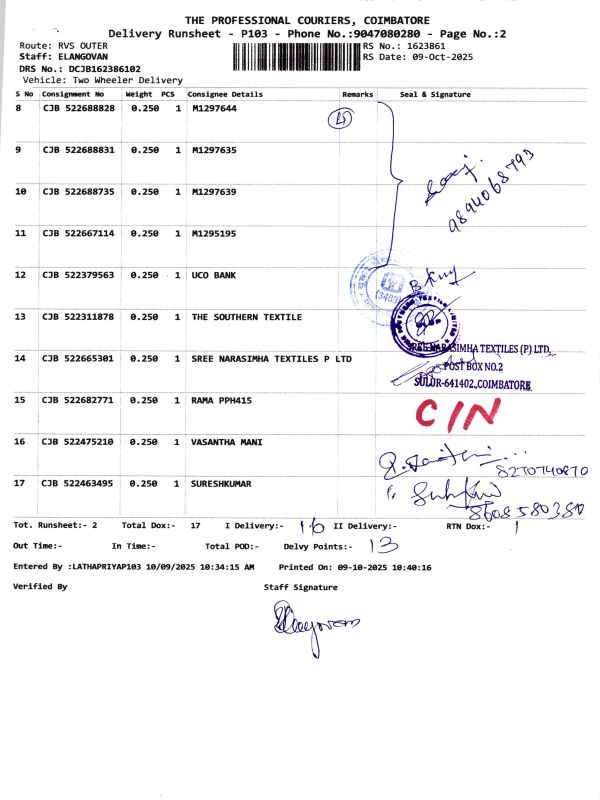 THE PROFESSIONAL COURIERS, COIMBATORE
Delivery Runsheet - P103 - Phone No.:9047080280 - Page No.:2
Route: RVS OUTER
RS No.: 1623861
Staff: ELANGOVAN
RS Date: 09-Oct-2025
DRS No.: DCJB162386102
Vehicle: Two Wheeler Delivery
S No Consignment No Weight PCS Consignee Details Remarks Seal & Signature
8 CJB 522688828 0.250 1 M1297644
9 CJB 522688831 0.250 1 M1297635
10 CJB 522688735 0.250 1 M1297639
9894068793
11 CJB 522667114 0.250 1 M1295195
12 CJB 522379563 0.250 1 UCO BANK
13 CJB 522311878 0.250 1 THE SOUTHERN TEXTILE
14 CJB 522665301 0.250 1 SREE NARASIMHA TEXTILES P LTD
SREE NARASIMHA TEXTILES (P) LTD.
POST BOX NO.2
SULUR-641402, COIMBATORE
15 CJB 522682771 0.250 1 RAMA PPH415 C/N
16 CJB 522475210 0.250 1 VASANTHA MANI
8270740870
17 CJB 522463495 0.250 1 SURESHKUMAR
8608580380
Tot. Runsheet:- 2 Total Dox:- 17 I Delivery:- 16 II Delivery:- RTN Dox:- 1
Out Time:- In Time:- Total POD:- Delvy Points:- 13
Entered By :LATHAPRIYAP103 10/09/2025 10:34:15 AM Printed On: 09-10-2025 10:40:16
Verified By Staff Signature